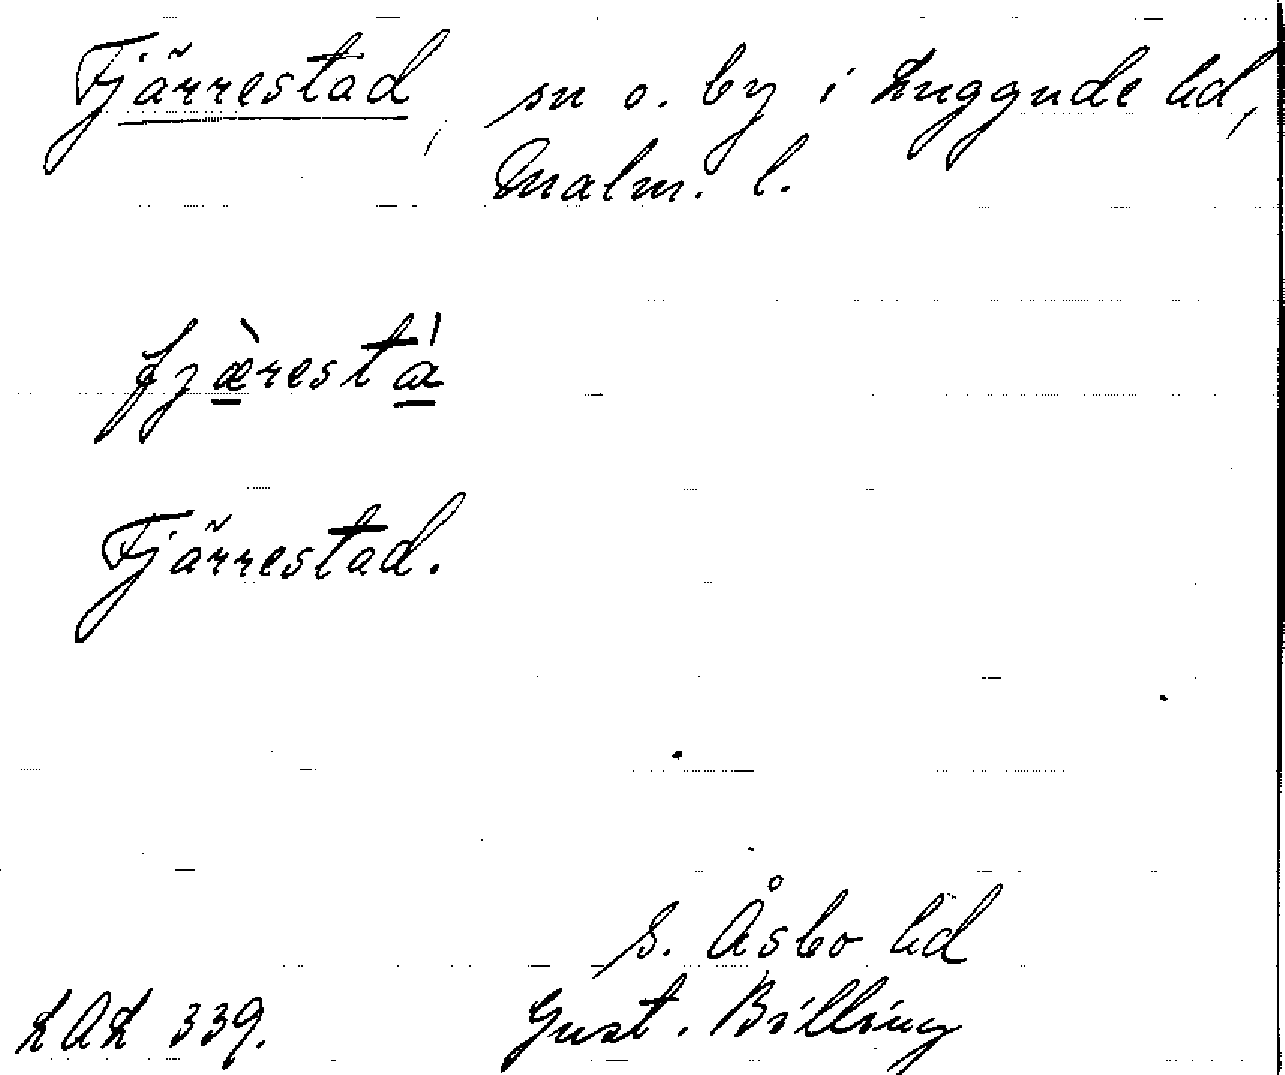 Fjärrestad, sn o. by i Luggude hd,
Malm. l.
fjæ̀restá
Fjärrestad.
S. Åsbo hd
LAL 339. Gust. Billing